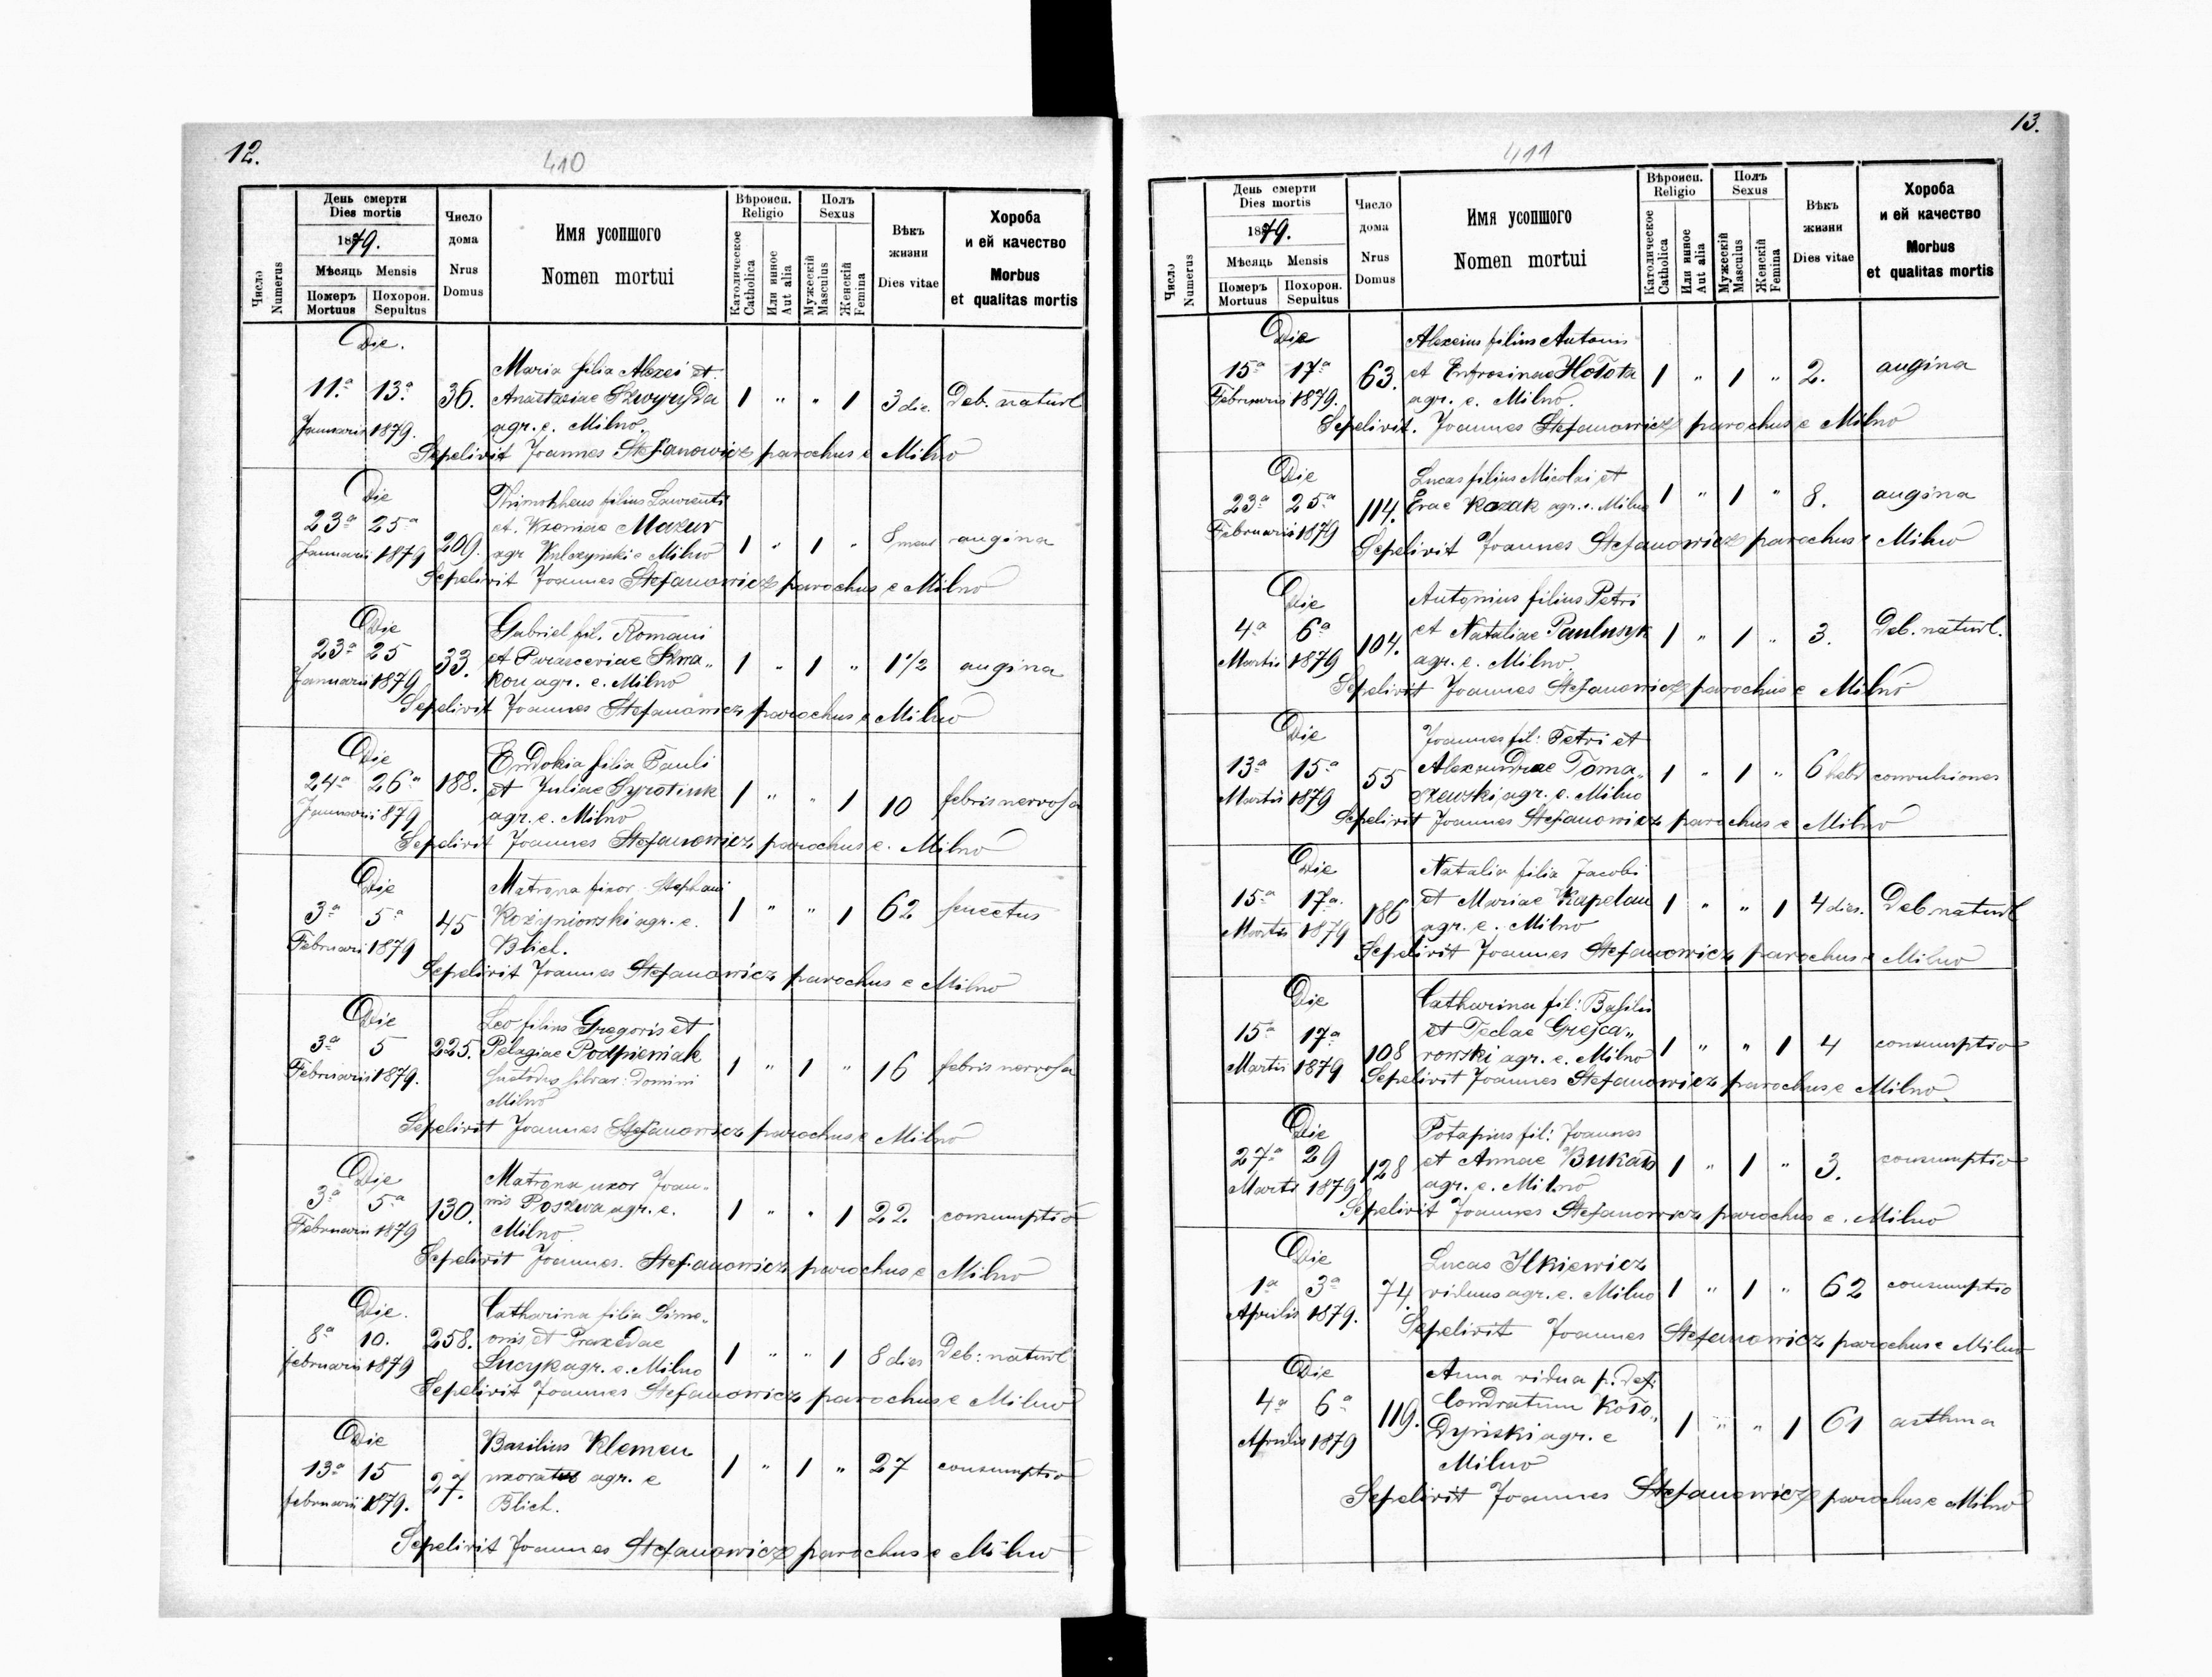 12.
410
Число Numerus
День смерти
Dies mortis
1879.
Мѣсяць Mensis
Померъ Mortuus
Похорон. Sepultus
Число дома
Nrus Domus
Имя усопшого
Nomen mortui
Вѣроисп.
Religio
Католическое Catholica
Или инное Aut alia
Полъ
Sexus
Мужескій Masculus
Женскій Femina
Вѣкъ жизни
Dies vitae
Хороба
и ей качество
Morbus
et qualitas mortis
Die.
Maria filia Alexei et
11ª 13ª 36. Anastasiae Skwyryda 1 " " 1 3 die. Deb. naturl
Januarii 1879. agr. e. Milno.
Sepelivit Joannes Stefanowicz parochus e Milno
Die
Thimotheus filius Laurenti
23ª 25ª et. Kseniae Mazur
Januarii 1879 209. agr e Milno 1 " 1 " 8 mens angina
Sepelivit Joannes Stefanowicz parochus e Milno
Die
Gabriel fil. Romani
23ª 25 33. et Parasceviae Skwa„ 1 " 1 " 1 1/2 angina
Januarii 1879 kou agr. e. Milno
Sepelivit Joannes Stefanowicz parochus e Milno
Die
Eudokia filia Pauli
24ª 26ª 188. et Juliae Syrotiuk 1 " " 1 10 febris nervosa
Januarii 1879 agr. e. Milno
Sepelivit Joannes Stefanowicz parochus e. Milno
Die
Matrona uxor Stephani
3ª 5ª 45 agr. e. 1 " " 1 62 senectus
Februarii 1879 Blich.
Sepelivit Joannes Stefanowicz parochus e Milno
Die
Leo filius Gregoris et
3ª 5 225. Pelagiae Podpieniak 1 " 1 " 16 febris nervosa
Februarii 1879. Custodis silvar: Domini
Milno
Sepelivit Joannes Stefanowicz parochus e Milno
Die
Matrona uxor Joan„
3ª 5ª 130. nis Poszwa agr. e. 1 " " 1 22 consumptio
Februarii 1879 Milno.
Sepelivit Joannes. Stefanowicz parochus e Milno
Die.
Catharina filia Sime„
8ª 10. 258. onis et Praxedae 1 " " 1 8 dies Deb: naturl
februarii 1879 Lucyk agr. e. Milno
Sepelivit Joannes Stefanowicz parochus e Milno
Die
Basilius Klemen
13ª 15 27. uxoratus agr. e 1 " 1 " 27 consumptio
februarii 1879. Blich.
Sepelivit Joannes Stefanowicz parochus e Milno
13.
411
Число Numerus
День смерти
Dies mortis
1879.
Мѣсяць Mensis
Померъ Mortuus
Похорон. Sepultus
Число дома
Nrus Domus
Имя усопшого
Nomen mortui
Вѣроисп.
Religio
Католическое Catholica
Или инное Aut alia
Полъ
Sexus
Мужескій Masculus
Женскій Femina
Вѣкъ жизни
Dies vitae
Хороба
и ей качество
Morbus
et qualitas mortis
Die
Alexeius filius Antonis
15ª 17ª 63. et Eufrosinae Hołota 1 " 1 " 2. angina
Februarii 1879. agr. e. Milno.
Sepelivit. Joannes Stefanowicz parochus e Milno
Die
Lucas filius Nicolai et
23ª 25ª 114. Evae Kozak agr. e. Milno 1 " 1 " 8. angina
Februarii 1879
Sepelivit Joannes Stefanowicz parochus e Milno
Die
Antonius filius Petri
4ª 6ª 104. et Nataliae Paulusyk 1 " 1 " 3. Deb. naturl.
Martis 1879 agr. e. Milno.
Sepelivit Joannes Stefanowicz parochus e Milno
Die
Joannes fil: Petri et
13ª 15ª 55 Alexandrae Toma„ 1 " 1 " 6 hebd convulsiones
Martis 1879 szewski agr. e. Milno
Sepelivit Joannes Stefanowicz parochus e Milno
Die
Natalia filia Jacobi
15ª 17ª 186 et Mariae Kapelan 1 " " 1 4 dies. Deb naturl
Martis 1879 agr. e. Milno
Sepelivit Joannes Stefanowicz parochus e Milno
Die
Catharina fil: Basilii
15ª 17ª 108 et Teclae Grejca„ 1 " " 1 4 consumptio
Martis 1879 rowski agr. e. Milno
Sepelivit Joannes Stefanowicz parochus e Milno.
Die
Potapius fil: Joannes
27ª 29 128 et Annae 1 " 1 " 3. consumptio
Martis 1879 agr. e. Milno
Sepelivit Joannes Stefanowicz parochus e. Milno
Die
Lucas Ilkiewicz
1ª 3ª 74. viduus agr. e. Milno 1 " 1 " 62 consumptio
Aprilis 1879.
Sepelivit Joannes Stefanowicz parochus e Milno
Die
Anna vidua p. def:
4ª 6ª 119. Condratum Koło„ 1 " " 1 61 asthma
Aprilis 1879 dyński agr. e
Milno
Sepelivit Joannes Stefanowicz parochus e Milno